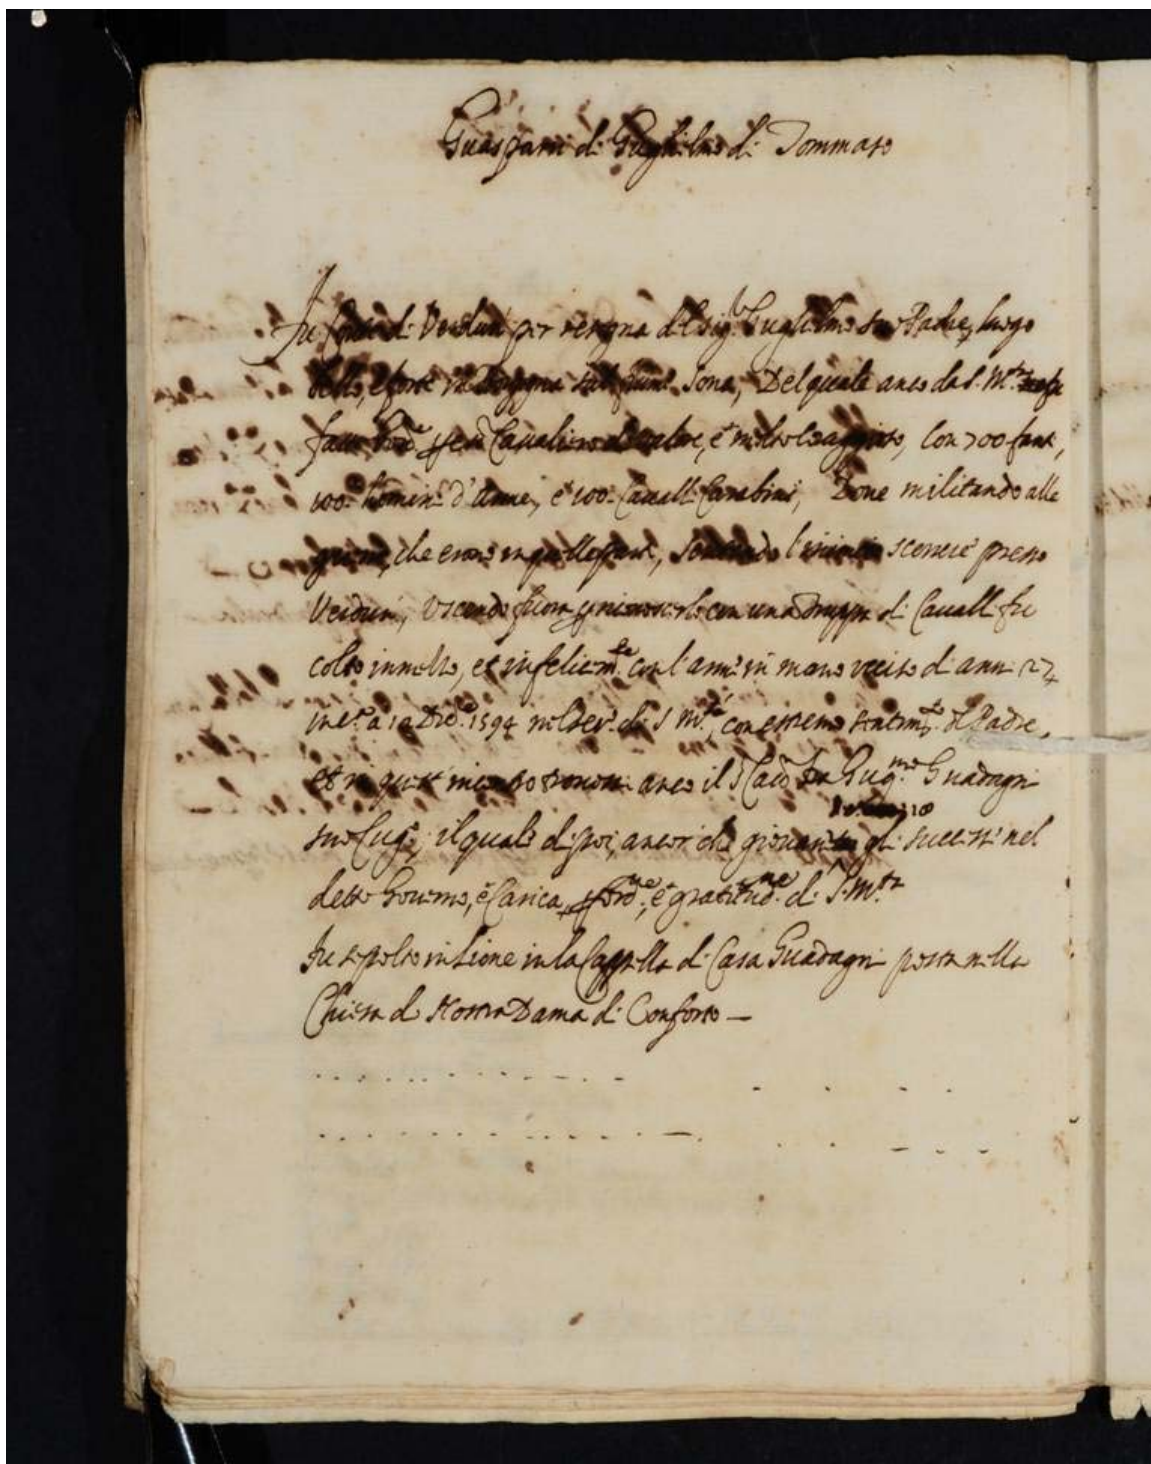 Guasparri di Guglielmo di Tommaso
Fu Conte di Verdun per resegna del Sig.r Guglielmo suo Padre, luogo
bello, e forte in Borgogna sul fiume Sona, Del quale anco da S. M.tà
Cavaliero di valore, e molto coraggioso, con 700 fanti,
100 homini d'arme, e 100 Cavalli Carabini, Dove militando alle
guerre, che erano in quelle parti, l'inimico presso
Verdun, Uscendo fuora con una truppa di Cavalli fu
colto in mezzo, et infelicem.te con l'armi in mano ucciso d'anni 27
a 12 Dic.e 1594 nel ser.o di S. M.tà, con estremo sentim.to del Padre,
et in quest' anco il Gug.mo Guadagni
suo Cug.o, il quale di poi, ancor che giovan gli successe nel
detto Governo, e Carica, e gratitud.ne di S. M.tà
Fu sepolto in Lione in la Cappella di Casa Guadagni posta nella
Chiesa di Nostra Dama di Conforto —